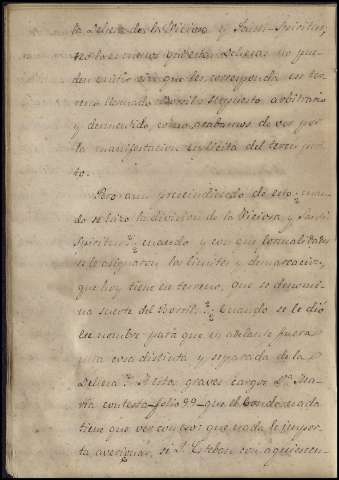 la Dehesa de la Viciosa y Santi-Spiritus,
los terrenos de estas Dehesas no pue-
den existir sin que les corresponda un ter-
reno llamado Borril supuesto arbitrario
y desmentido, como acabamos de ver por
la manifestacion esplicita del tercer peri-
to.
Pero aun prescindiendo de esto ¿cuan-
do se hizo la division de la Viciosa y Santi
Spiritus? ¿cuando y con que formalidades
se le asignaron los limites y demarcacion,
que hoy tiene en terreno, que se denomi-
na suerte del Borril? ¿Cuando se le dió
ese nombre para que en adelante fuera
una cosa distinta y separada de la
Dehesa? A estos graves cargos Dª Ma-
ria contesta folio 99 que el Conde nada
tiene que ver con eso: que nada le impor-
ta averiguar, si D. Esteban con aquiescen-